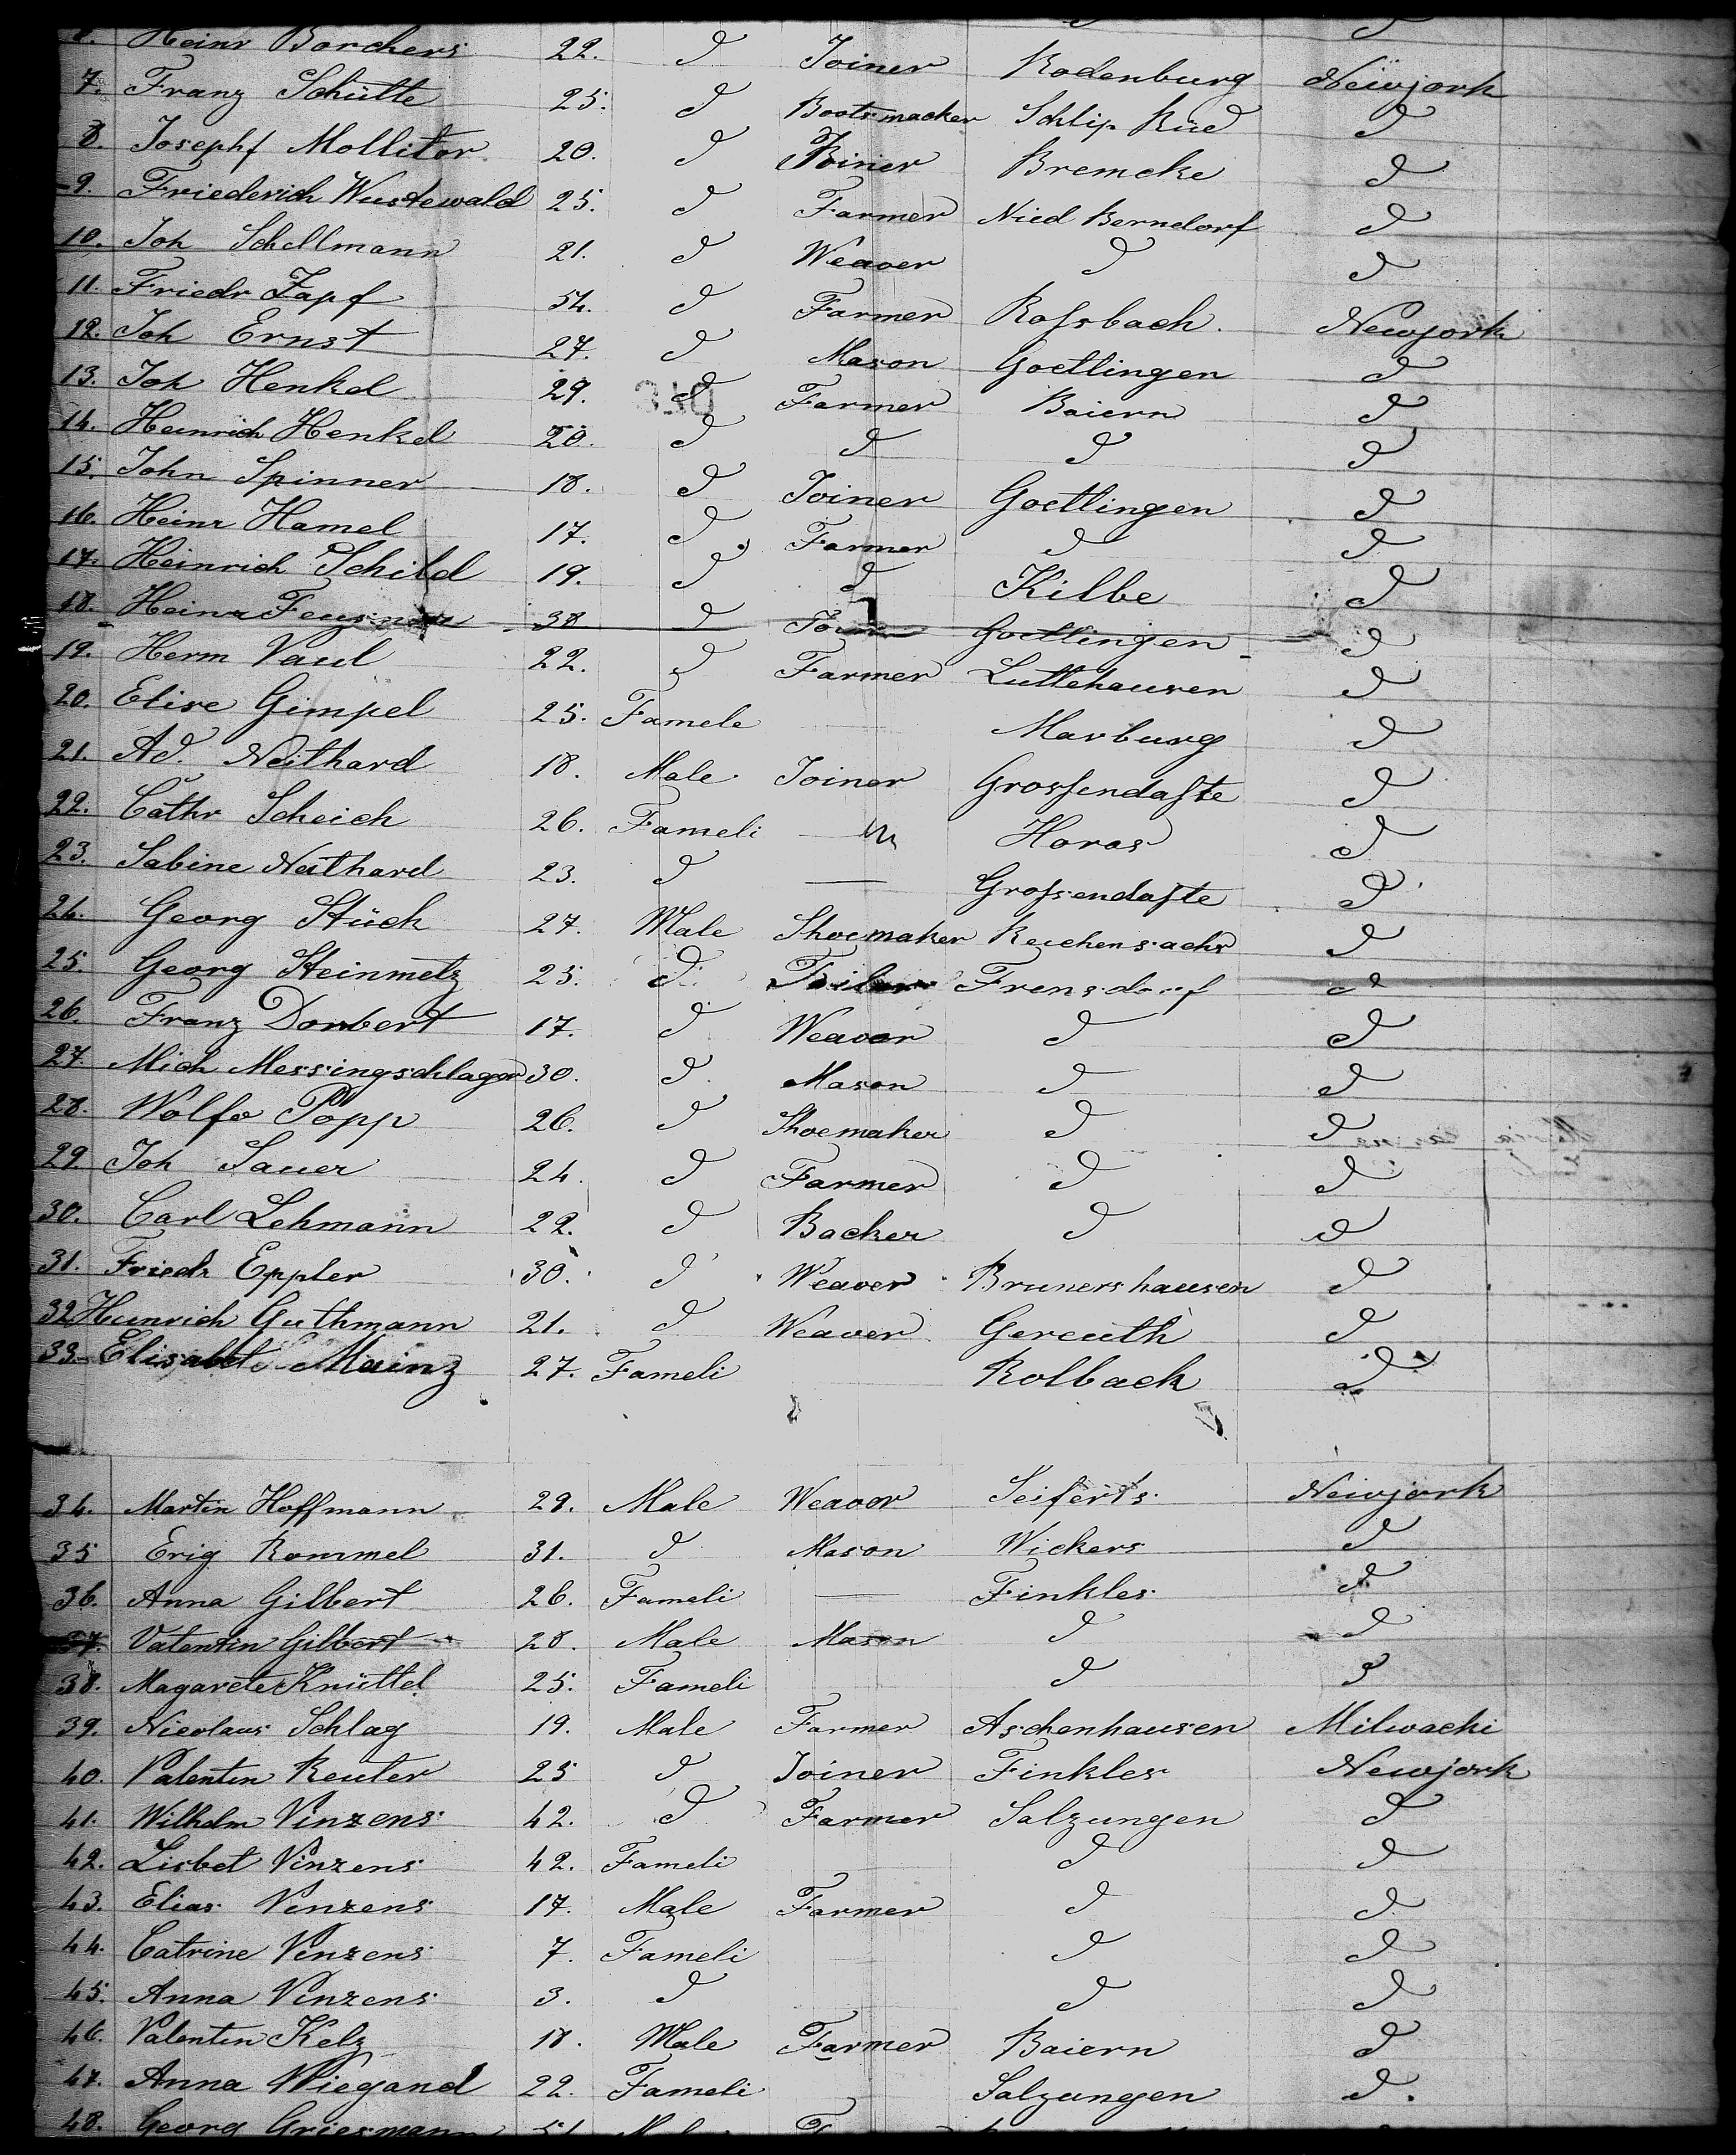 Heinr Borchers 22. d Joiner Rodenburg Newjork
7. Franz Schütte 25. d Bootsmacker Schlip Rüe d
8. Josephf Mollitor 20. d Joiner Bremcke d
9. Friederich Wustewald 25. d Farmer Nied Berndorf d
10. Joh Schellmann 21. d Weaver d d
11. Friedr Zapf 54. d Farmer Rossbach. Newjork
12. Joh Ernst 27. d Mason Goettingen d
13. Joh Henkel 29. d Farmer Baiern d
14. Heinrich Henkel 20. d d d d
15. John Spinner 18. d Joiner Goettingen d
16. Heinr Hamel 17. d Farmer d d
17. Heinrich Schild 19. d d Kilbe d
18. Heinr 38 d Goettingen d
19. Herm Paul 22. d Farmer Luttehausen d
20. Elise Gimpel 25. Famele Marburg d
21. Ad. Neithard 18. Male Joiner Grossendafte d
22. Cathr Scheich 26. Fameli — Horas d
23. Sabine Neithard 23. d — Grossendafte d
24. Georg Stück 27. Male Shoemaker Reichensachs d
25. Georg Steinmetz 25. d Frensdorf d
26. Franz Dorbert 17. d Weavor d d
27. Mich Messingschlager 30. d Mason d d
28. Wolfo Popp 26. d Shoemaker d d
29. Joh Sauer 24. d Farmer d d
30. Carl Lehmann 22. d Backer d d
31. Friedr Eppler 30. d Weaver Brunershausen d
32 Heinrich Guthmann 21. d Weaver Gereuth d
33. Elisabet Mainz 27. Fameli Rolback d
34. Martin Hoffmann 29. Male Weavor Seiferts Newjork
35 Erig Rommel 31. d Mason Wickers d
36. Anna Gilbert 26. Fameli — Finkles d
37. Valentin Gilbert 28. Male Mason d d
38. Magarete Knüttel 25. Fameli d d
39. Nicolaus Schlag 19. Male Farmer Aschenhausen Milwacki
40. Valentin Reuter 25 d Joiner Finkles Newjork
41. Wilhelm Vinzens 42. d Farmer Salzungen d
42. Lisbet Vinzens 42. Fameli d d
43. Elias Vinzens 17. Male Farmer d d
44. Catrine Vinzens 7. Fameli d d
45. Anna Vinzens 3. d d d
46. Valentin Kelz 18. Male Farmer Baiern d
47. Anna Wiegand 22. Fameli Salzungen d.
48. Georg Griesmann 51